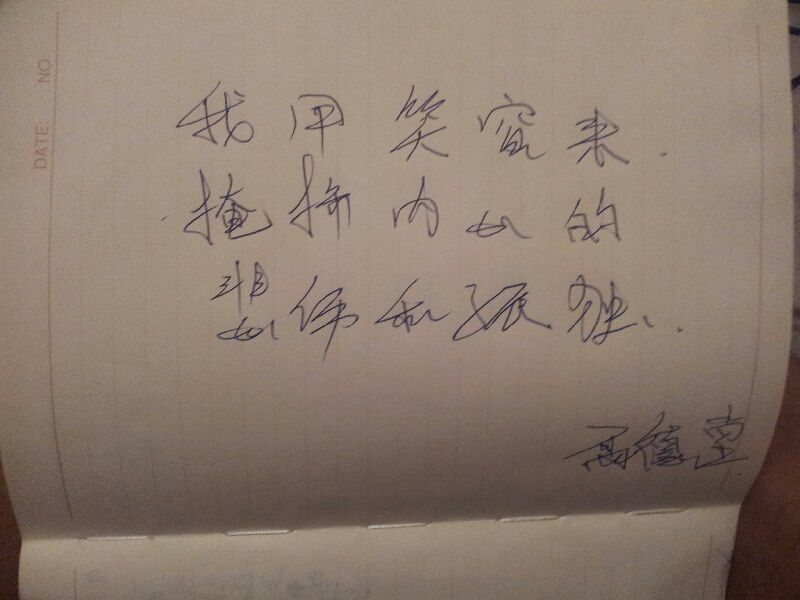 我用笑容来
掩饰内心的
悲伤和孤独..
高德宣
DATE:
NO